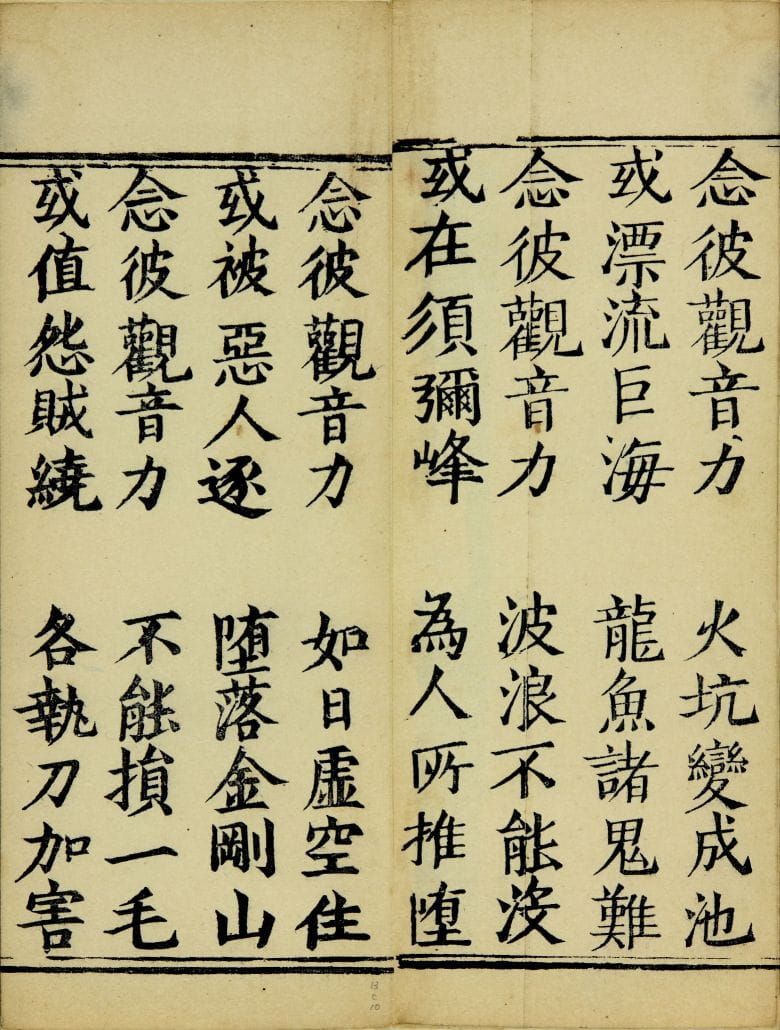 念彼觀音力　火坑變成池
或漂流巨海　龍魚諸鬼難
念彼觀音力　波浪不能沒
或在須彌峰　為人所推堕
念彼觀音力　如日虛空住
或被惡人逐　堕落金剛山
念彼觀音力　不能損一毛
或值怨賊繞　各執刀加害
B
C
10